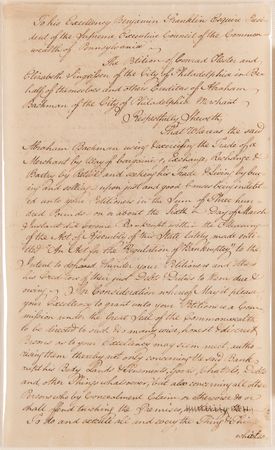 To his Excellency Benjamin Franklin Esquire Presi-
dent of the Supreme Executive Council of the Common
wealth of Pennsylvania
The Petition of Conrad and
Elizabeth of the City of Philadelphia in Be-
half of themselves and other Creditors of Abraham
Backman of the City of Philadelphia Merchant
Respectfully Sheweth,
That Whereas the said
Abraham Backman using & exercising the Trade of a
Merchant by Way of Bargaining, Exchange, Rechange &
Barter by Retail and seeking his Trade & living by buy-
ing and selling upon just and good Causes being indebt
ed unto your Petitioners in the Sum of Three hun-
dred Pounds on or about the Sixth Day of March
Instant did become Bankrupt within the Meaning
of the Act of Assembly of this State lately made enti
tled "An Act for the Regulation of Bankruptcy" to the
Intent to defraud & hinder your Petitioners and others
his Creditors of their just Debts & Duties to them due &
owing. In Consideration whereof May it please
your Excellency to grant unto your Petitioners a Com-
mission under the Great Seal of the Commonwealth
to be directed to such & so many wise, honest & discreet
Persons as to your Excellency may seem meet, autho
rizing them thereby not only concerning the said Bank
rupt his Body Lands & Tenements, Goods, Chattels, Debts
and other Things whatsoever, but also concerning all other
Persons who by Concealment Claim or otherwise do or
shall offend touching the Premises,
To do and execute all and every the Thing & Things
whatso